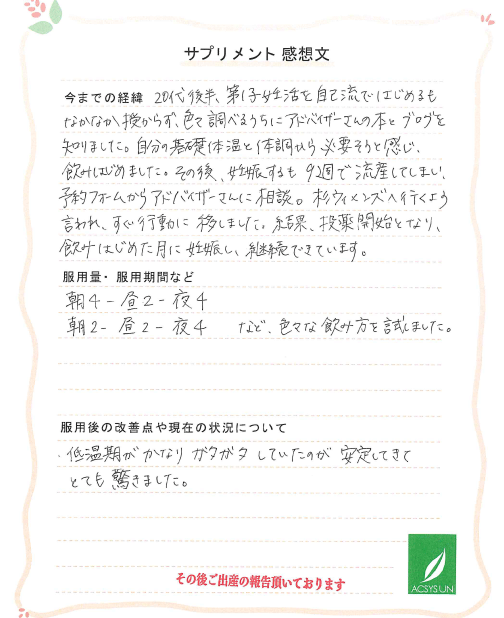 サプリメント 感想文
今までの経緯 20代後半、第1子妊活を自己流ではじめるも
なかなか授からず、色々調べるうちにアドバイザーさんの本とブログを
知りました。自分の基礎体温と体調から必要そうと感じ、
飲みはじめました。その後、妊娠するも 9週で流産してしまい、
予約フォームからアドバイザーさんに相談。杉ウィメンズへ行くよう
言われ、すぐ行動に移しました。結果、投薬開始となり、
飲みはじめた月に妊娠し、継続できています。
服用量・服用期間など
朝4-昼2-夜4
朝2-昼2-夜4 など、色々な飲み方を試しました。
服用後の改善点や現在の状況について
・低温期がかなりガタガタしていたのが 安定してきて
とても驚きました。
その後ご出産の報告頂いております
ACSYSUN